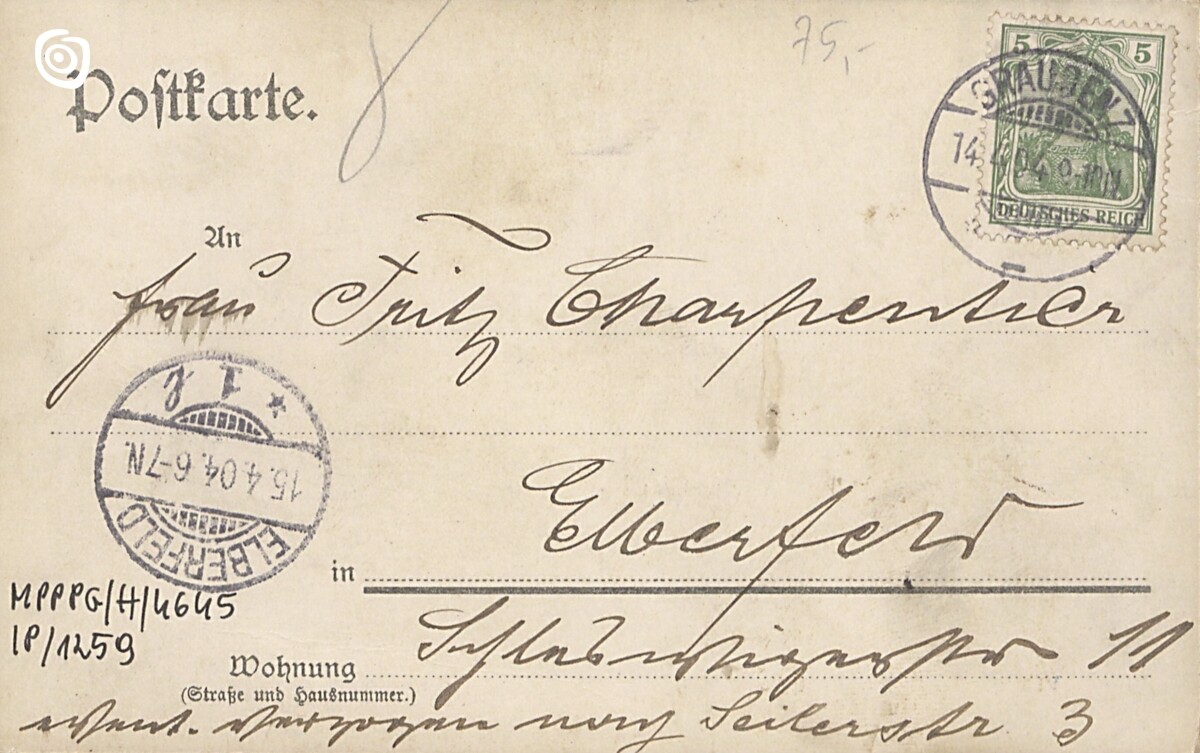 Postkarte.
75,-
5 5
GRAUDENZ
14.4.04.9-10N
DEUTSCHES REICH
An
Frau Fritz Charpentier
* 1 k
15.4.04.6-7N.
ELBERFELD
in Elberfeld
MPPPG/H/4645
IP/1259
Wohnung Schleswigerstr 11
(Straße und Hausnummer.)
event. verzogen nach Seilerstr 3